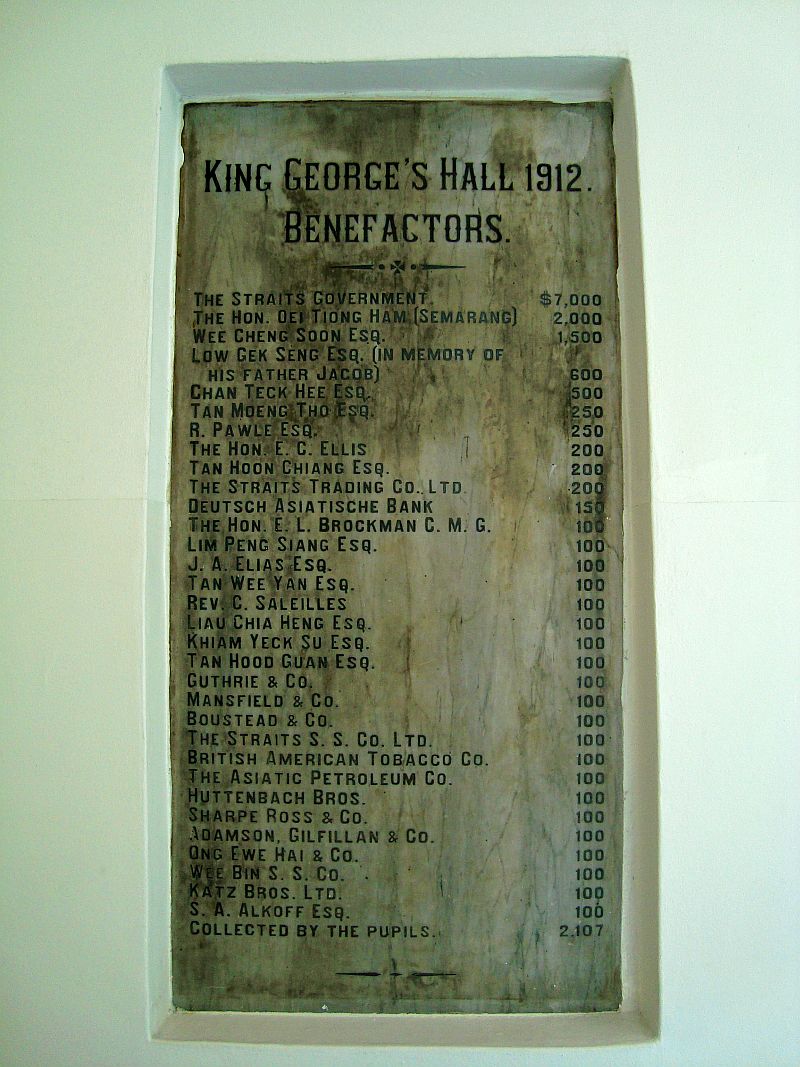 KING GEORGE'S HALL 1912.
BENEFACTORS.
THE STRAITS GOVERNMENT. $7,000
THE HON. OEI TIONG HAM (SEMARANG) 2,000
WEE CHENG SOON ESQ. 1,500
LOW GEK SENG ESQ. (IN MEMORY OF
HIS FATHER JACOB) 600
CHAN TECK HEE ESQ. 500
TAN MOENG THO ESQ. 250
R. PAWLE ESQ. 250
THE HON. E. C. ELLIS 200
TAN HOON CHIANG ESQ. 200
THE STRAITS TRADING CO. LTD. 200
DEUTSCH ASIATISCHE BANK 150
THE HON. E. L. BROCKMAN C. M. G. 100
LIM PENG SIANG ESQ. 100
J. A. ELIAS ESQ. 100
TAN WEE YAN ESQ. 100
REV. C. SALEILLES 100
LIAU CHIA HENG ESQ. 100
KHIAM YECK SU ESQ. 100
TAN HOOD GUAN ESQ. 100
GUTHRIE & CO. 100
MANSFIELD & CO. 100
BOUSTEAD & CO. 100
THE STRAITS S. S. CO. LTD. 100
BRITISH AMERICAN TOBACCO CO. 100
THE ASIATIC PETROLEUM CO. 100
HUTTENBACH BROS. 100
SHARPE ROSS & CO. 100
ADAMSON, GILFILLAN & CO. 100
ONG EWE HAI & CO. 100
WEE BIN S. S. CO. 100
KATZ BROS. LTD. 100
S. A. ALKOFF ESQ. 100
COLLECTED BY THE PUPILS. 2,107